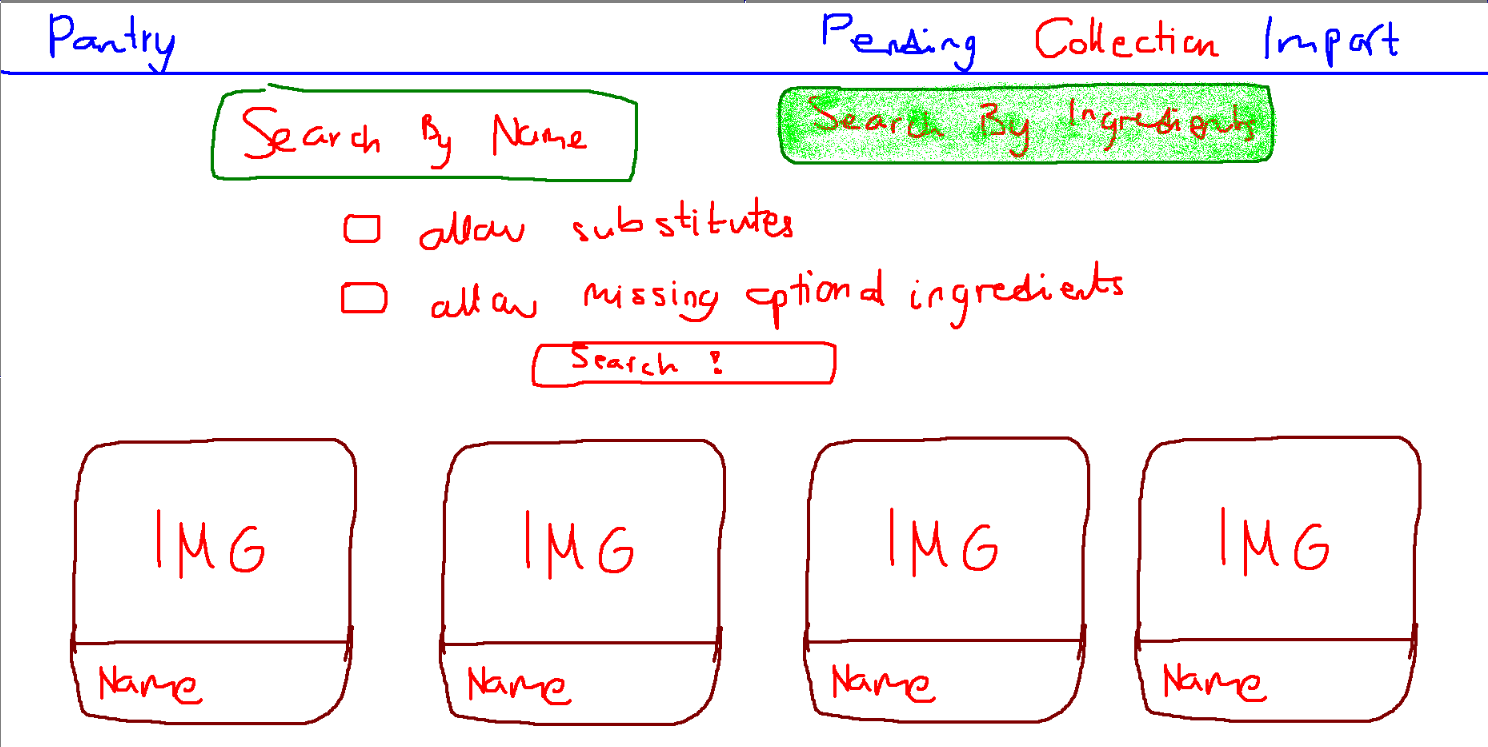 Pantry Pending Collection Import
Search By Name Search By Ingredients
allow substitutes
allow missing optional ingredients
Search !
IMG IMG IMG IMG
Name Name Name Name